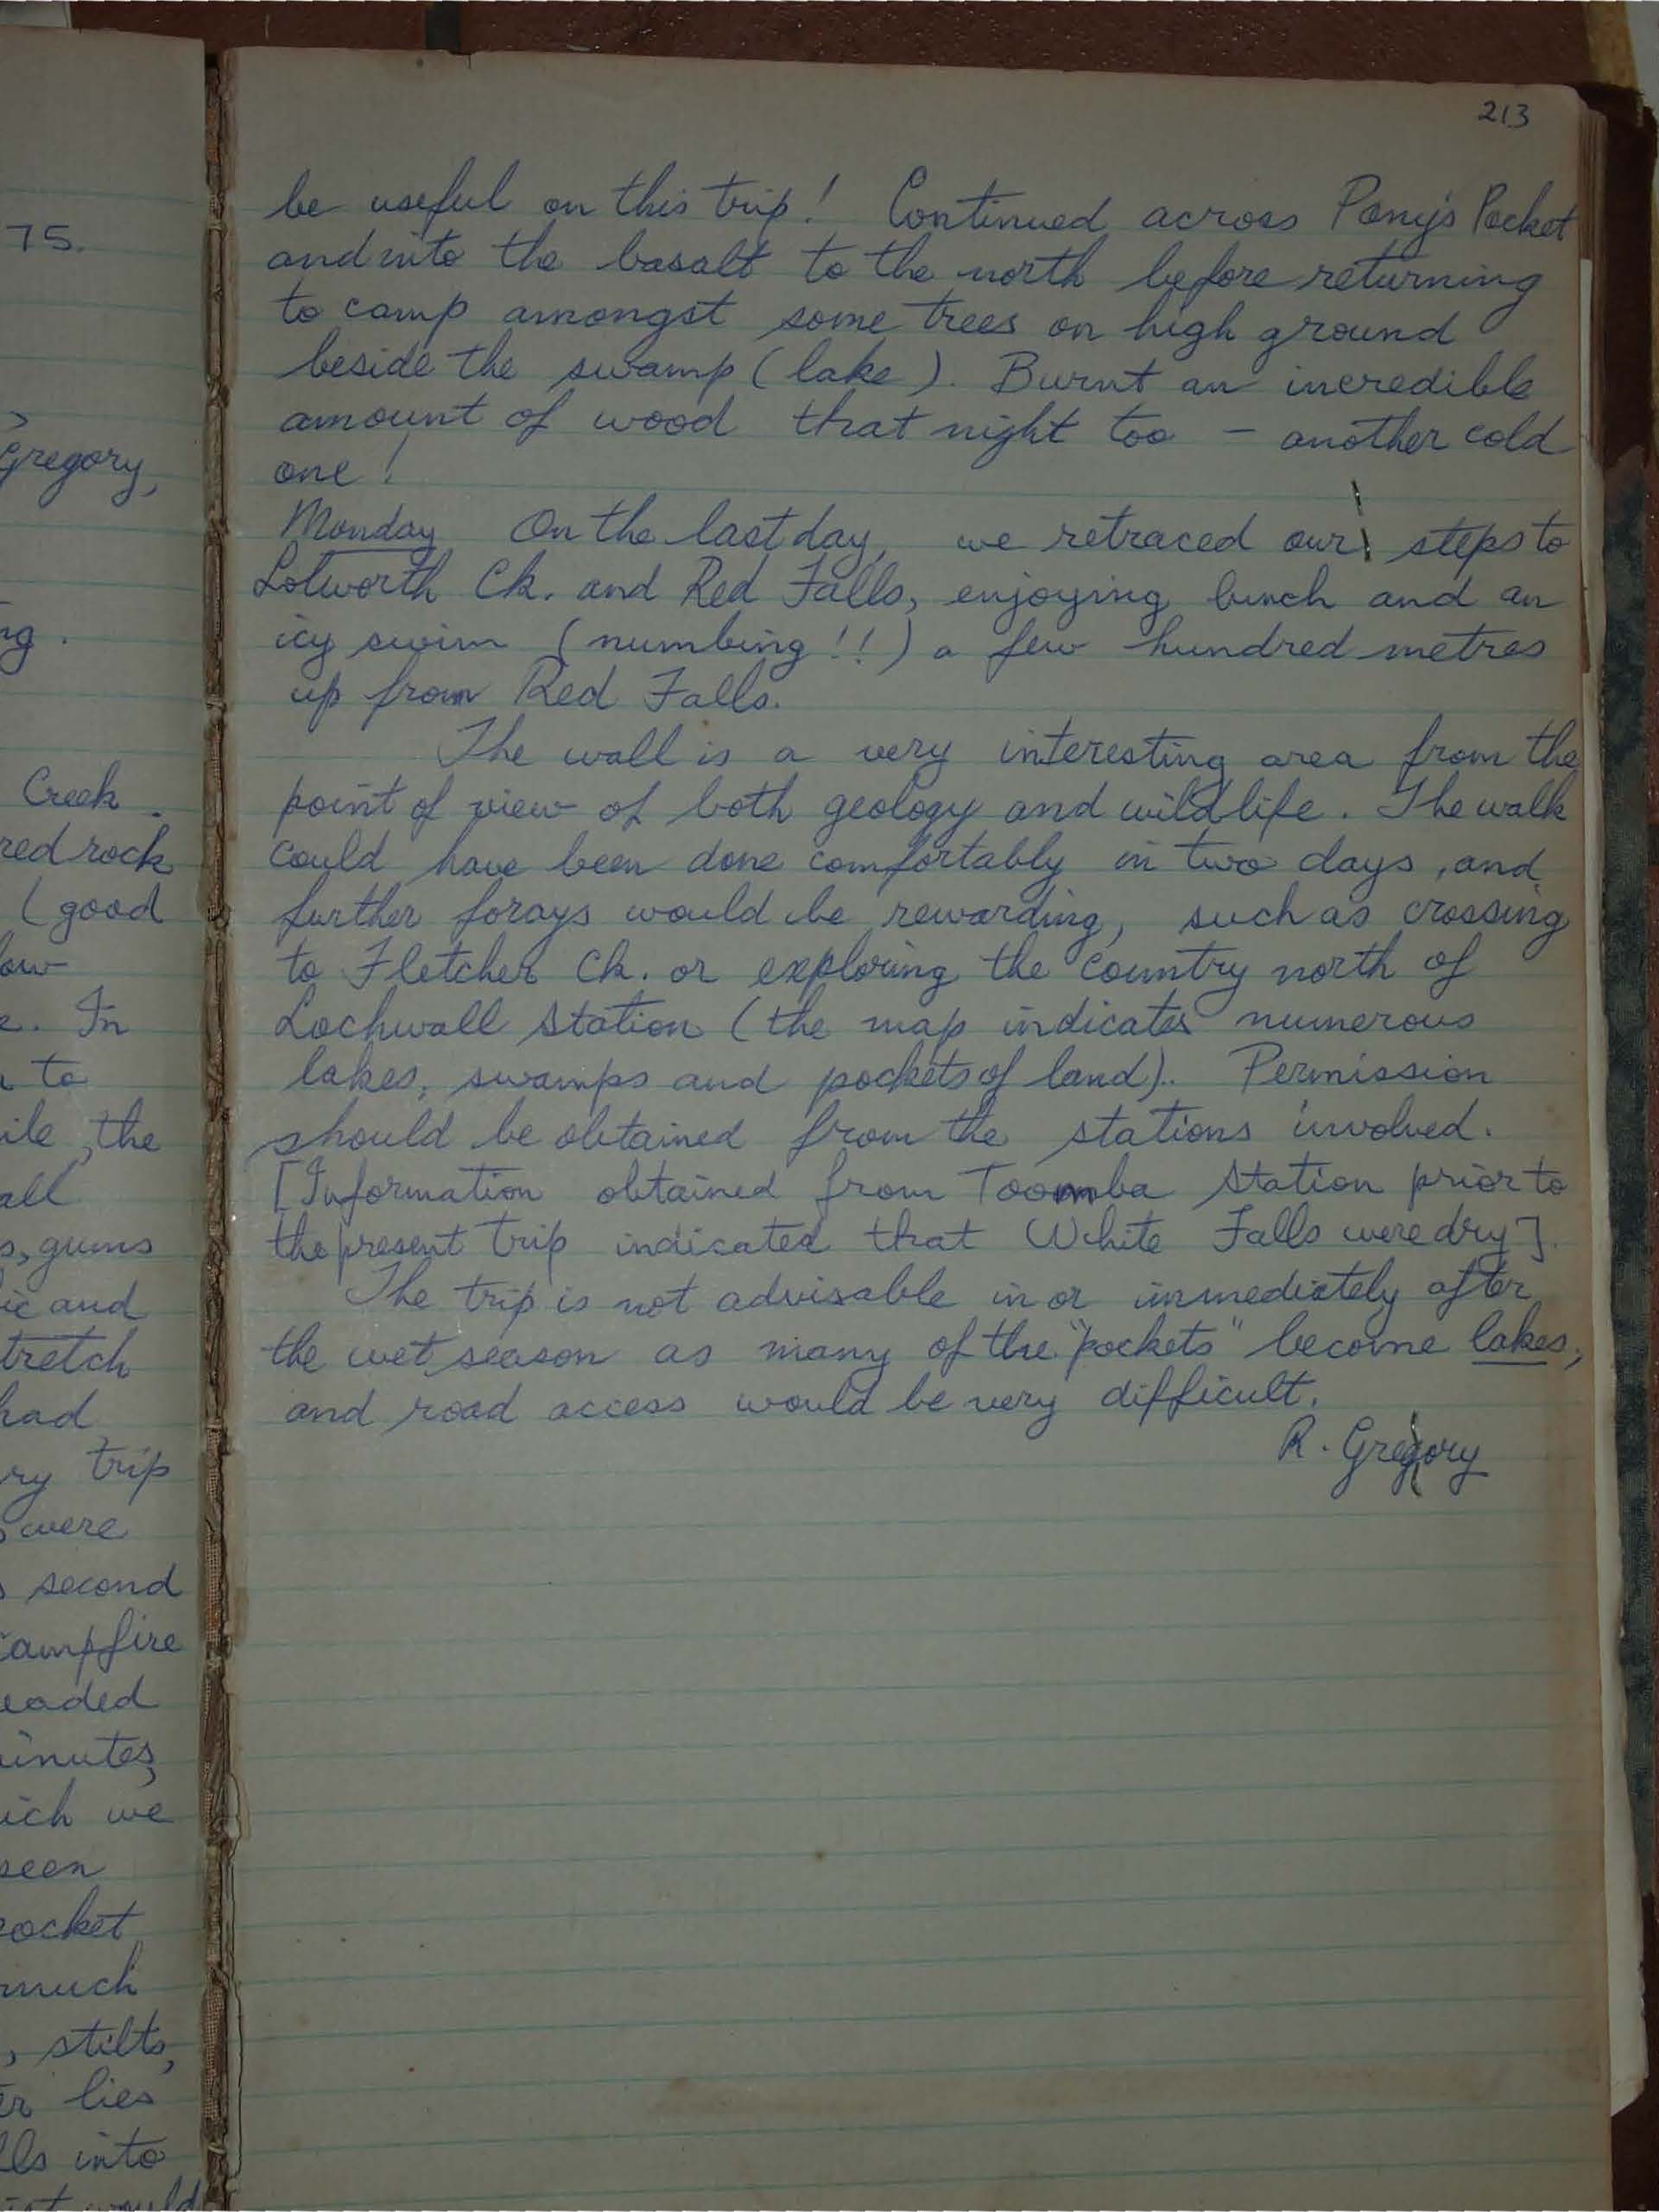 75.
Gregory,
ng.
Creek.
red rock
(good
ow
e. In
to
ile, the
all
s, gums
ic and
tretch
had
ry trip
were
second
campfire
eaded
inutes,
ich we
seen
ocket
much
, stilts,
er lies
lls into
would
213
be useful on this trip! Continued across Pony's Pocket
and into the basalt to the north before returning
to camp amongst some trees on high ground
beside the swamp (lake). Burnt an incredible
amount of wood that night too – another cold
one!
Monday On the last day, we retraced our steps to
Lolworth Ck. and Red Falls, enjoying lunch and an
icy swim (numbing!!) a few hundred metres
up from Red Falls.
The wall is a very interesting area from the
point of view of both geology and wildlife. The walk
could have been done comfortably in two days, and
further forays would be rewarding, such as crossing
to Fletcher Ck. or exploring the country north of
Lochwall Station (the map indicates numerous
lakes, swamps and pockets of land). Permission
should be obtained from the stations involved.
[Information obtained from Toomba Station prior to
the present trip indicated that White Falls were dry].
The trip is not advisable in or immediately after
the wet season as many of the "pockets" become lakes,
and road access would be very difficult.
R. Gregory